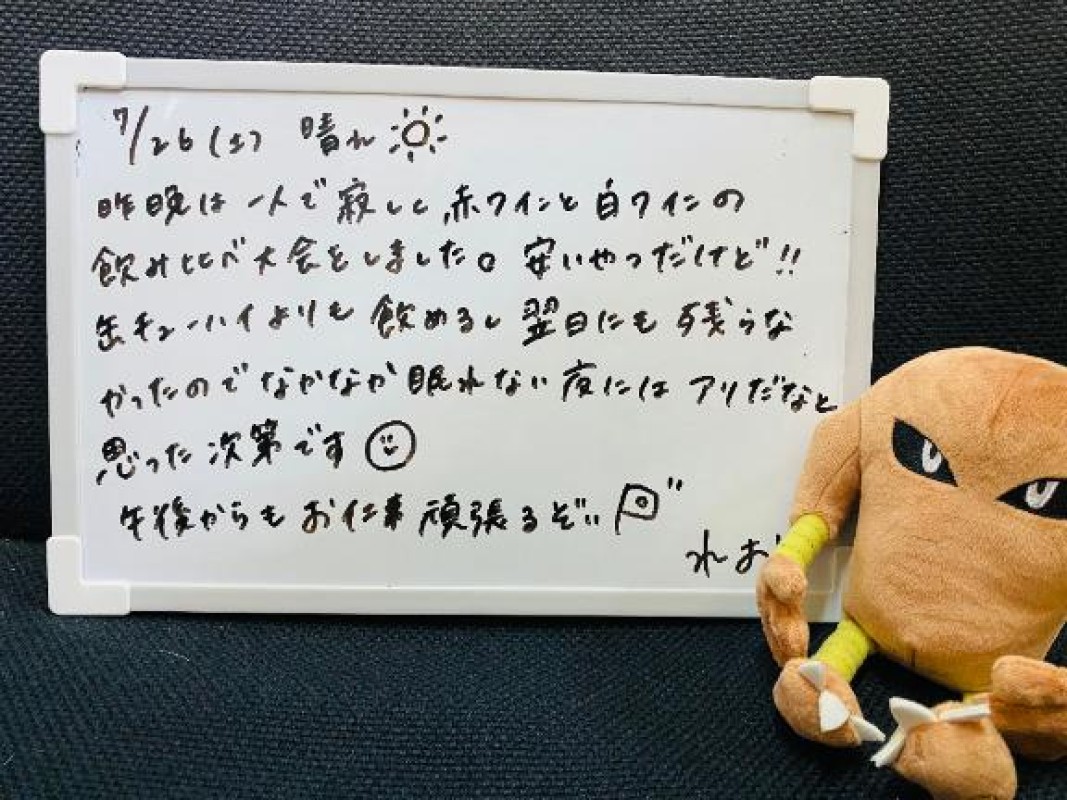 7/26(土) 晴れ
昨晩は一人で寂しく赤ワインと白ワインの
飲み比べ大会をしました。安いやつだけど!!
缶チューハイよりも飲めるし翌日にも残らな
かったのでなかなか眠れない夜にはアリだなと
思った次第です
午後からもお仕事頑張るぞい
れお